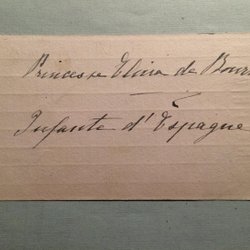 Princesse Elvira de Bour
Infante d'Espagne